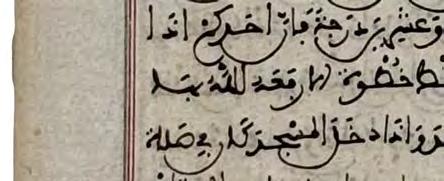 وعشرين درجة فان احدكم اذا
خطوة الا رفعه الله بها
واذا دخل المسجد كان في صلاة